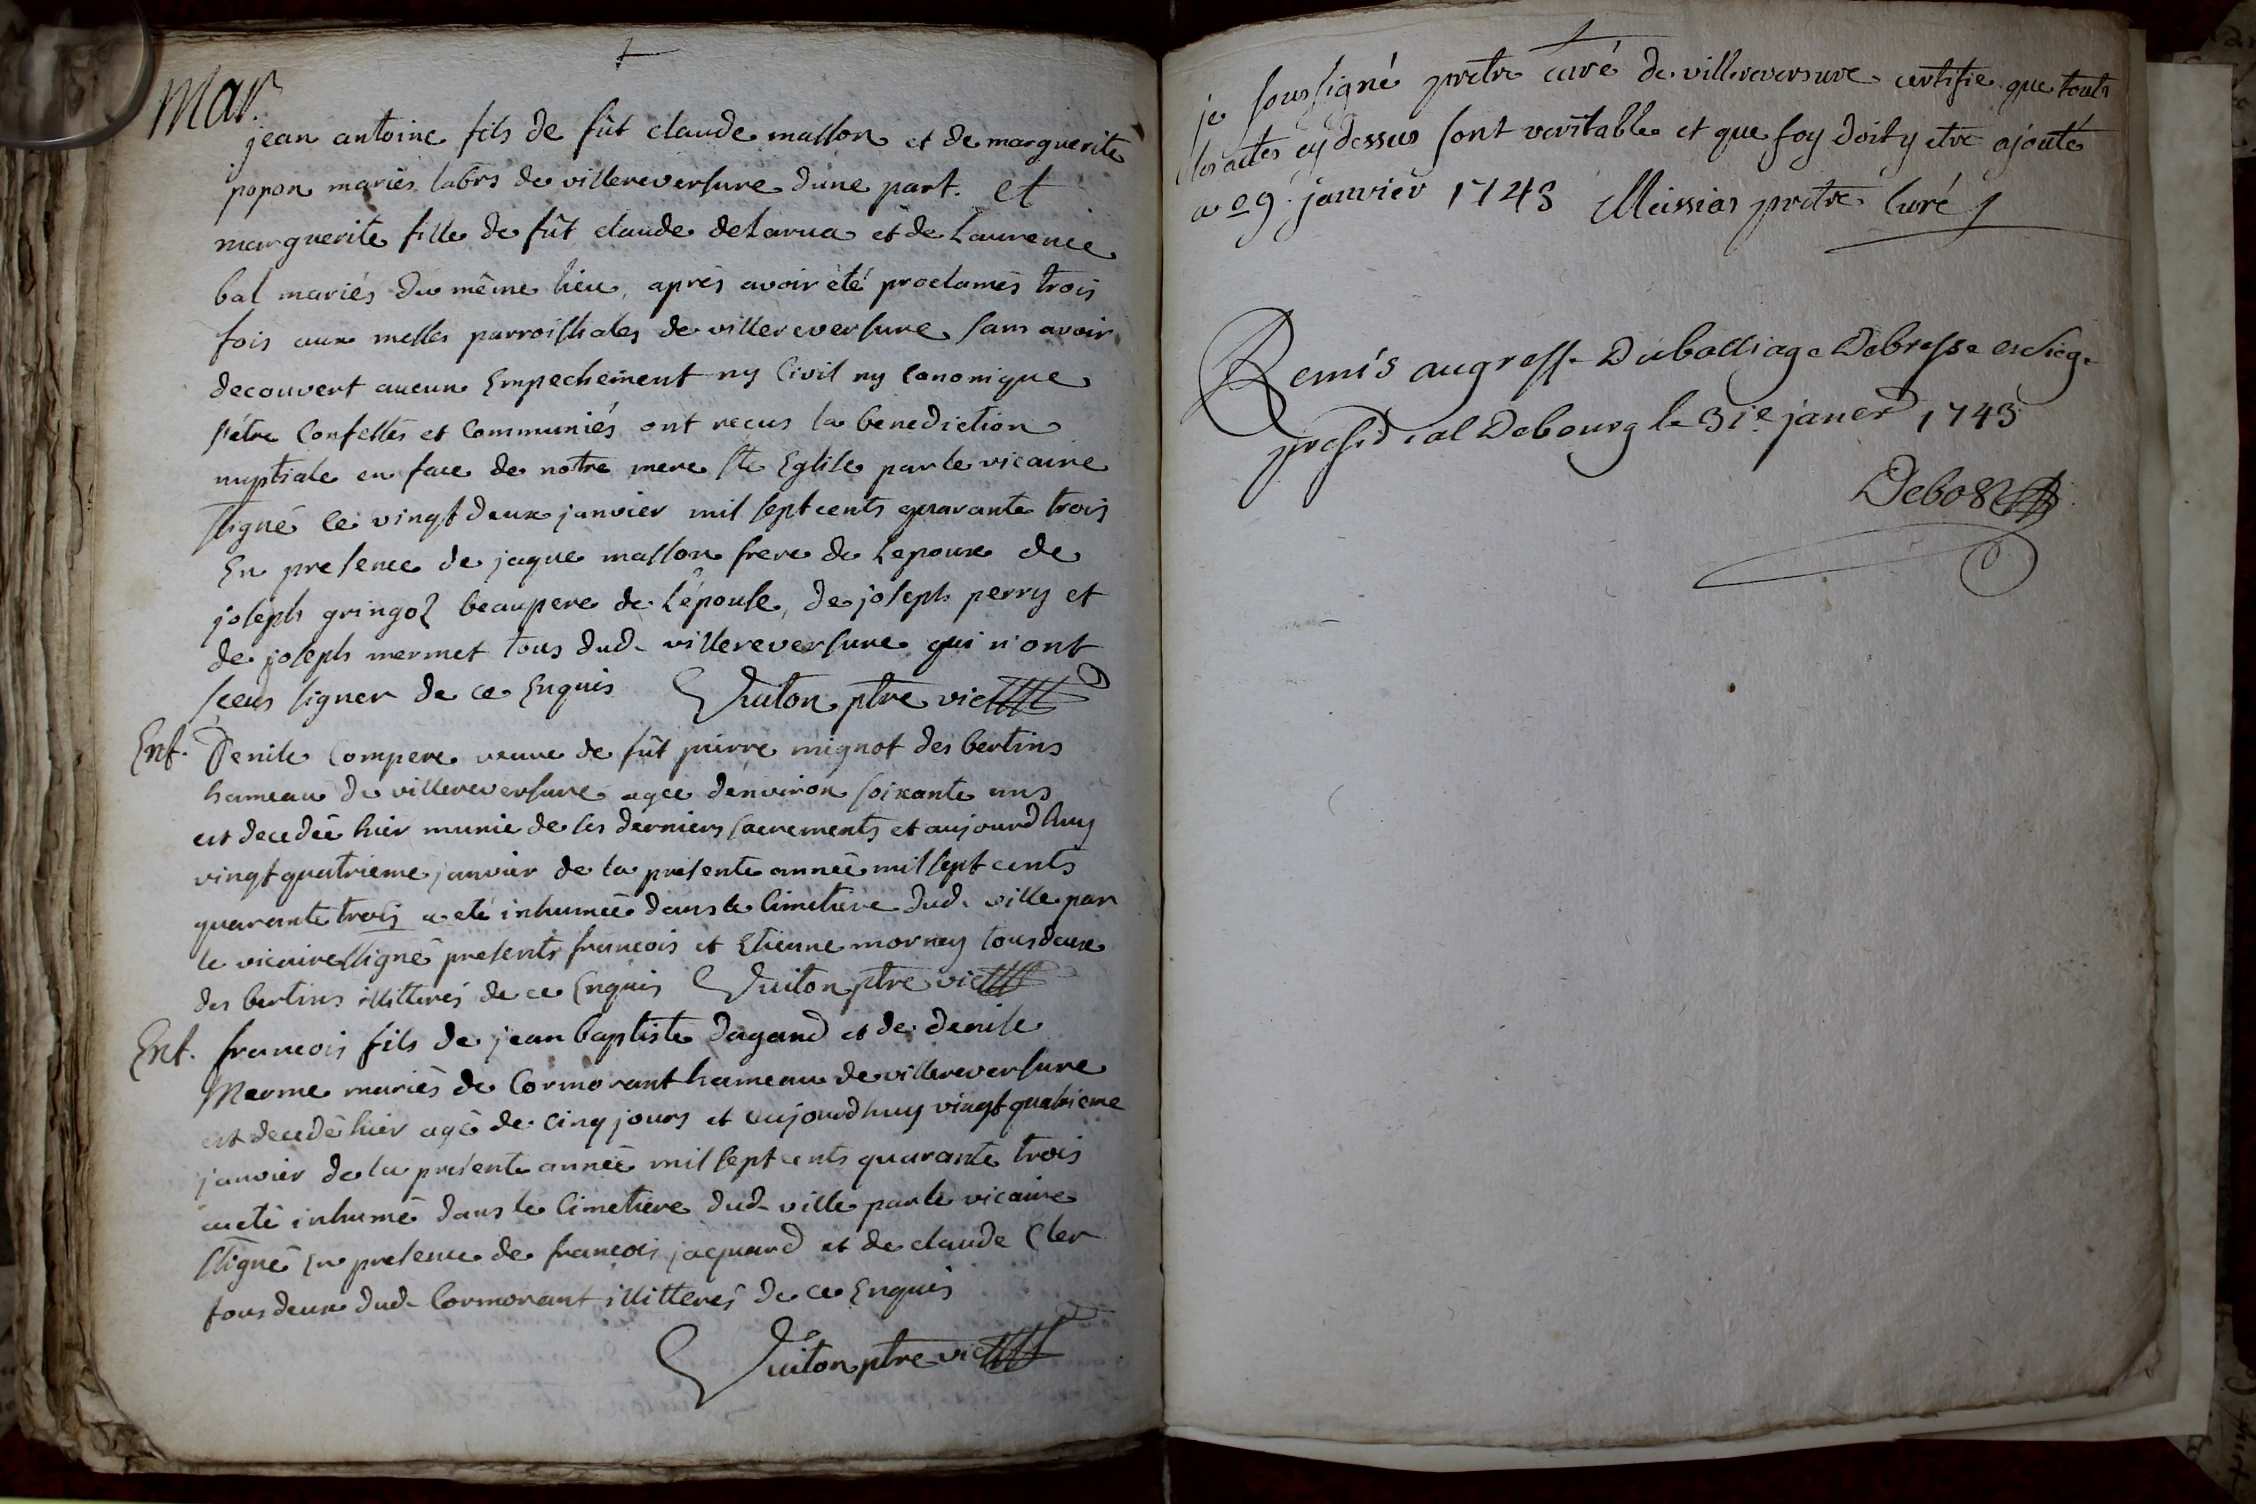 Mar.
jean antoine fils de fût claude masson et de marguerite
popon mariés labrs de villereversure dune part. et
marguerite fille de fût claude delarua et de Laurence
bal mariés du même lieu, aprés avoir été proclamés trois
fois aux messes parroissiales de villereversure sans avoir
decouvert aucun Empechement ny Civil ny Canonique
s'étre Confessés et Communiés ont recus la benediction
nuptiale en face de notre mere Ste Eglise par le vicaire
ssigné le vingt deux janvier mil sept cents quarante trois
En presence de jaque masson frere de Lepoux de
joseph gringoz beaupere de L'épouse, de joseph perry et
de joseph mermet tous dud. villereversure qui n'ont
sceus signer de ce Enquis Vuiton ptre vic
Ent. Denise Compere veuve de fût pierre mignot des bertins
hameau de villereversure agée denviron soixante ans
est decedée hier munie de ses derniers sacrements et aujourdhuy
vingt quatrieme janvier de la presente année mil sept cents
quarante trois a eté inhumée dans le Cimetiere dud. ville par
le vicaire ssigné presents francois et Etienne mornay tous deux
des bertins illiterés de ce Enquis Vuiton ptre vic
Ent. francois fils de jean baptiste dagand et de denise
Merme mariés de Cormorant hameau de villereversure
est decedé hier agé de cinq jours et aujourdhuy vingt quatrieme
janvier de la presente année mil sept cents quarante trois
a eté inhumé dans le Cimetiere dud. ville par le vicaire
ssigné En presence de francois jaquand et de claude Cler
tous deux dud. Cormorant illitterés de ce Enquis
Vuiton ptre vic
je soussigné pretre curé de villereversure certifie que touts
les actes cy dessus sont veritable et que foy doit y etre ajouté
a 29. janvier 1743 Meissiat pretre Curé
Remis au greffe Du balliage De bresse et siege
presidial De bourg le 31e janer 1743
Debost